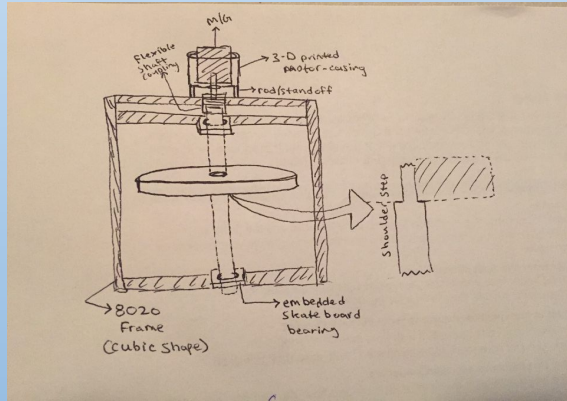 M/G
Flexible
shaft
coupling
3-D printed
motor-casing
rod/standoff
Shoulder Step
8020
Frame
(cubic shape)
embedded
skateboard
bearing